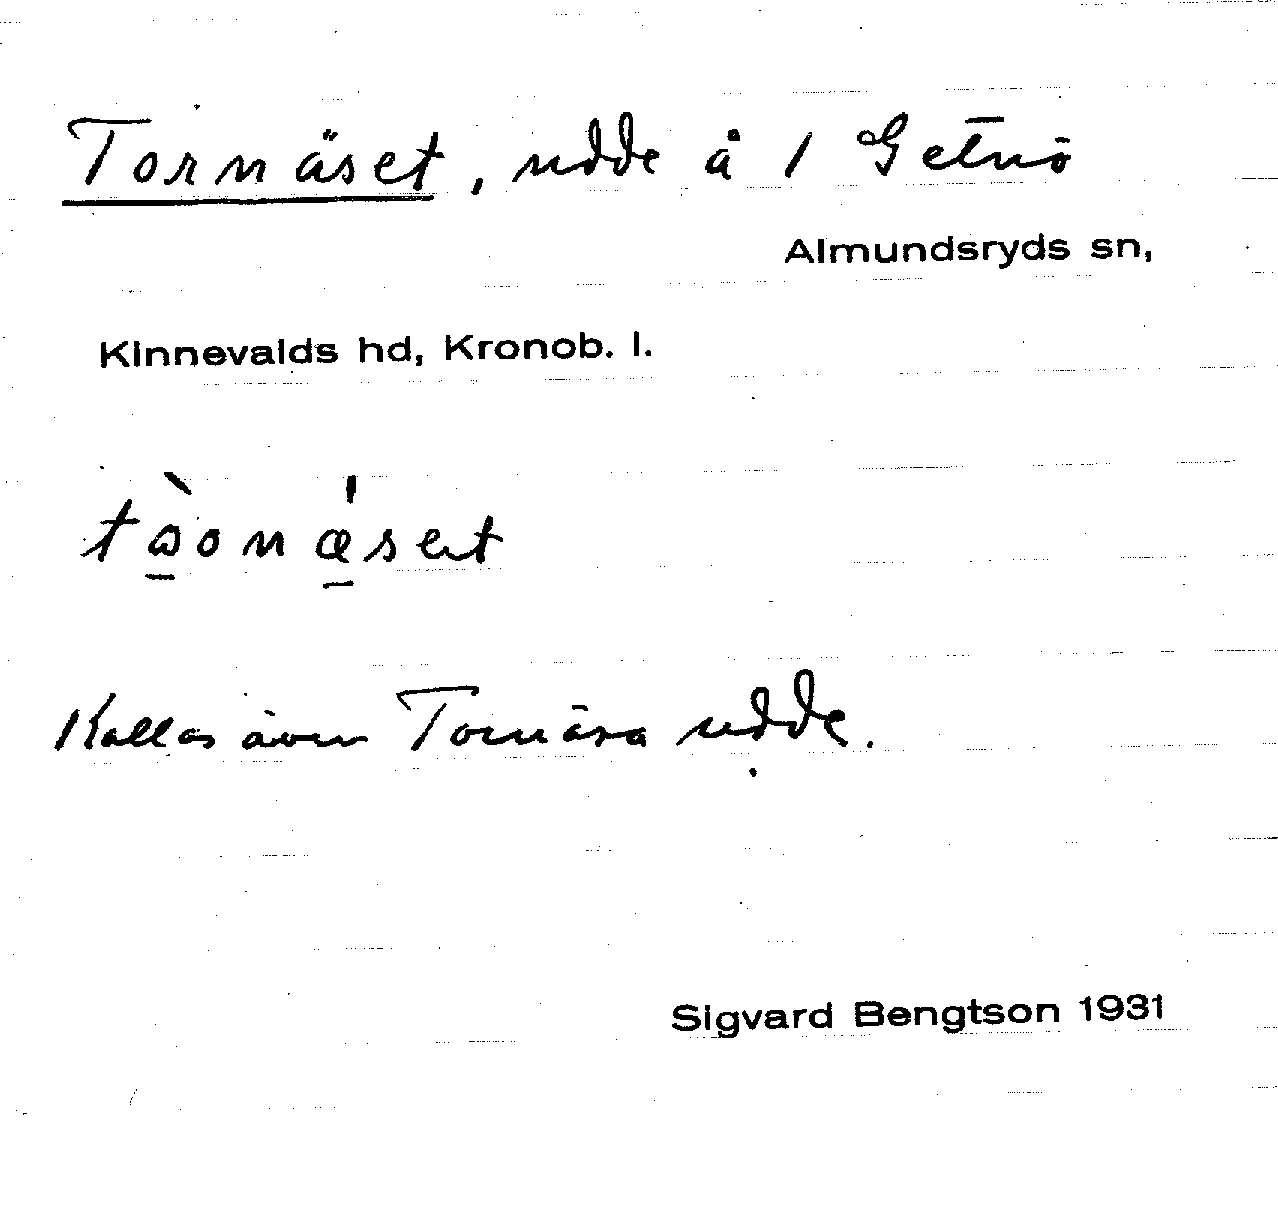 Tornäset, udde å 1 Getnö
Almundsryds sn,
Kinnevalds hd, Kronob. l.
Kallas även Tornäsa udde.
Sigvard Bengtson 1931